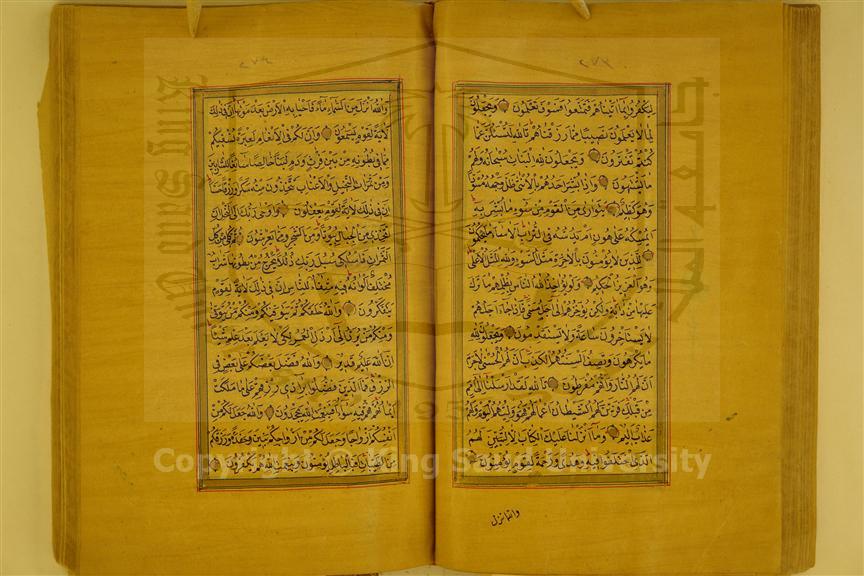 ليكفروا بما آتيناهم فتمتعوا فسوف تعلمون ويجعلون
لما لا يعلمون نصيبا مما رزقناهم تالله لتسئلن عما
كنتم تفترون ويجعلون لله البنات سبحانه ولهم
ما يشتهون واذا بشر احدهم بالانثى ظل وجهه مسودا
وهو كظيم يتوارى من القوم من سوء ما بشر به
ايمسكه على هون ام يدسه في التراب الا ساء ما يحكمون
للذين لا يؤمنون بالاخرة مثل السوء ولله المثل الاعلى
وهو العزيز الحكيم ولو يؤاخذ الله الناس بظلمهم ما ترك
عليها من دابة ولكن يؤخرهم الى اجل مسمى فاذا جاء اجلهم
لا يستاخرون ساعة ولا يستقدمون ويجعلون لله
ما يكرهون وتصف السنتهم الكذب ان لهم الحسنى لا جرم
ان لهم النار وانهم مفرطون تالله لقد ارسلنا الى امم
من قبلك فزين لهم الشيطان اعمالهم فهو وليهم اليوم ولهم
عذاب اليم وما انزلنا عليك الكتاب الا لتبين لهم
الذي اختلفوا فيه وهدى ورحمة لقوم يؤمنون
والله انزل
والله انزل من السماء ماء فاحيا به الارض بعد موتها ان في ذلك
لاية لقوم يسمعون وان لكم في الانعام لعبرة نسقيكم
مما في بطونه من بين فرث ودم لبنا خالصا سائغا للشاربين
ومن ثمرات النخيل والاعناب تتخذون منه سكرا ورزقا حسنا
ان في ذلك لاية لقوم يعقلون واوحى ربك الى النحل ان
اتخذي من الجبال بيوتا ومن الشجر ومما يعرشون ثم كلي من كل
الثمرات فاسلكي سبل ربك ذللا يخرج من بطونها شراب
مختلف الوانه فيه شفاء للناس ان في ذلك لاية لقوم
يتفكرون والله خلقكم ثم يتوفيكم ومنكم من يتوفى
ومنكم من يرد الى ارذل العمر لكي لا يعلم بعد علم شيئا
ان الله عليم قدير والله فضل بعضكم على بعض في
الرزق فما الذين فضلوا برادي رزقهم على ما ملكت
ايمانهم فهم فيه سواء افبنعمة الله يجحدون والله جعل لكم من
انفسكم ازواجا وجعل لكم من ازواجكم بنين وحفدة ورزقكم
من الطيبات افبالباطل يؤمنون وبنعمت الله هم يكفرون
Copyright © King Saud University